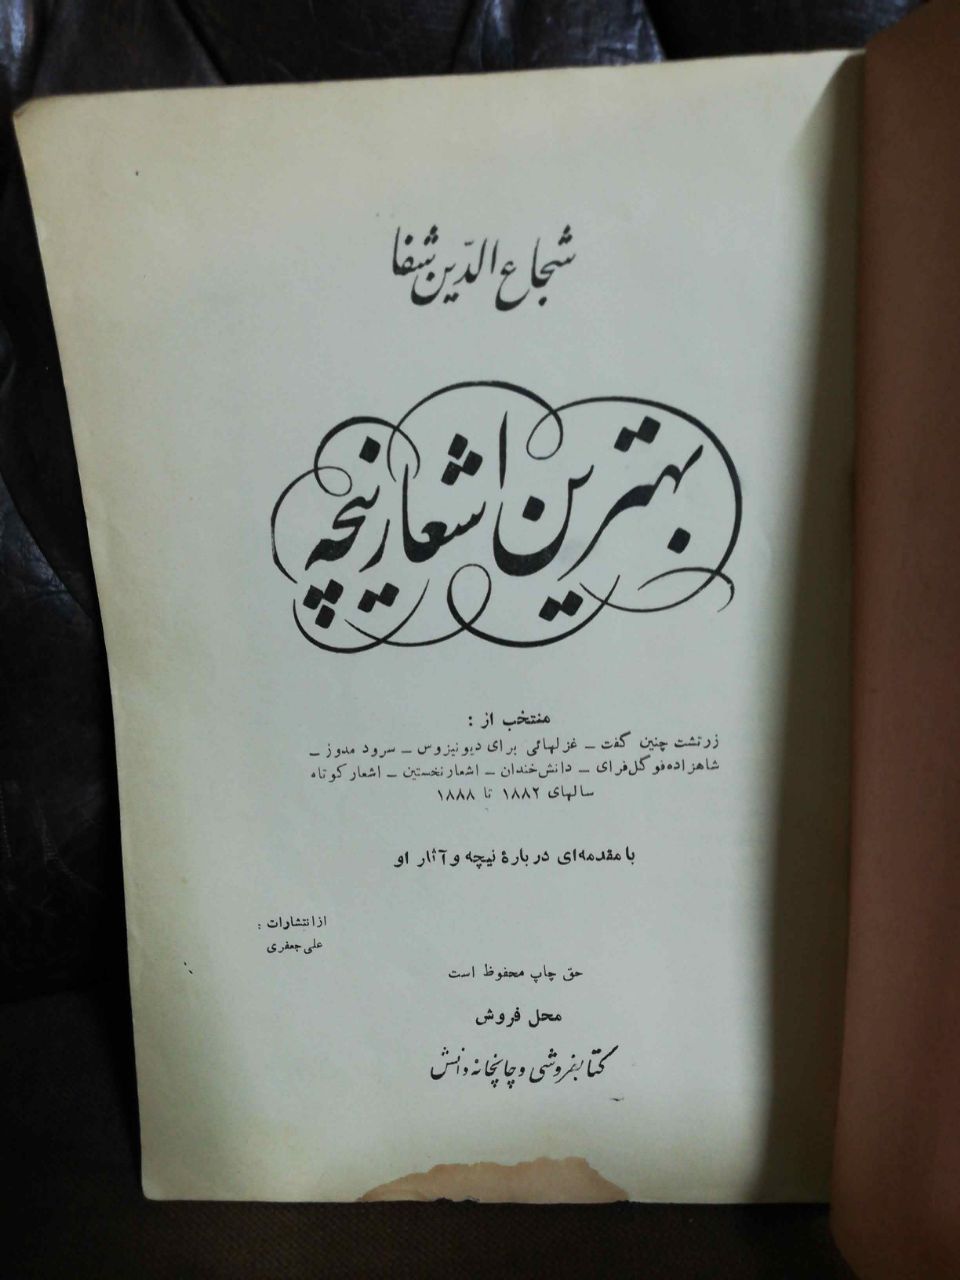 شجاع الدّین شفا
بهترین اشعار نیچه
منتخب از :
زرتشت چنین گفت ـ غزلهائی برای دیونیزوس ـ سرود مدوز ـ
شاهزاده فوگل فرای ـ دانش خندان ـ اشعار نخستین ـ اشعار کوتاه
سالهای ۱۸۸۲ تا ۱۸۸۸
با مقدمه‌ای درباره نیچه و آثار او
از انتشارات :
علی جعفری
حق چاپ محفوظ است
محل فروش
کتابفروشی و چاپخانه دانش